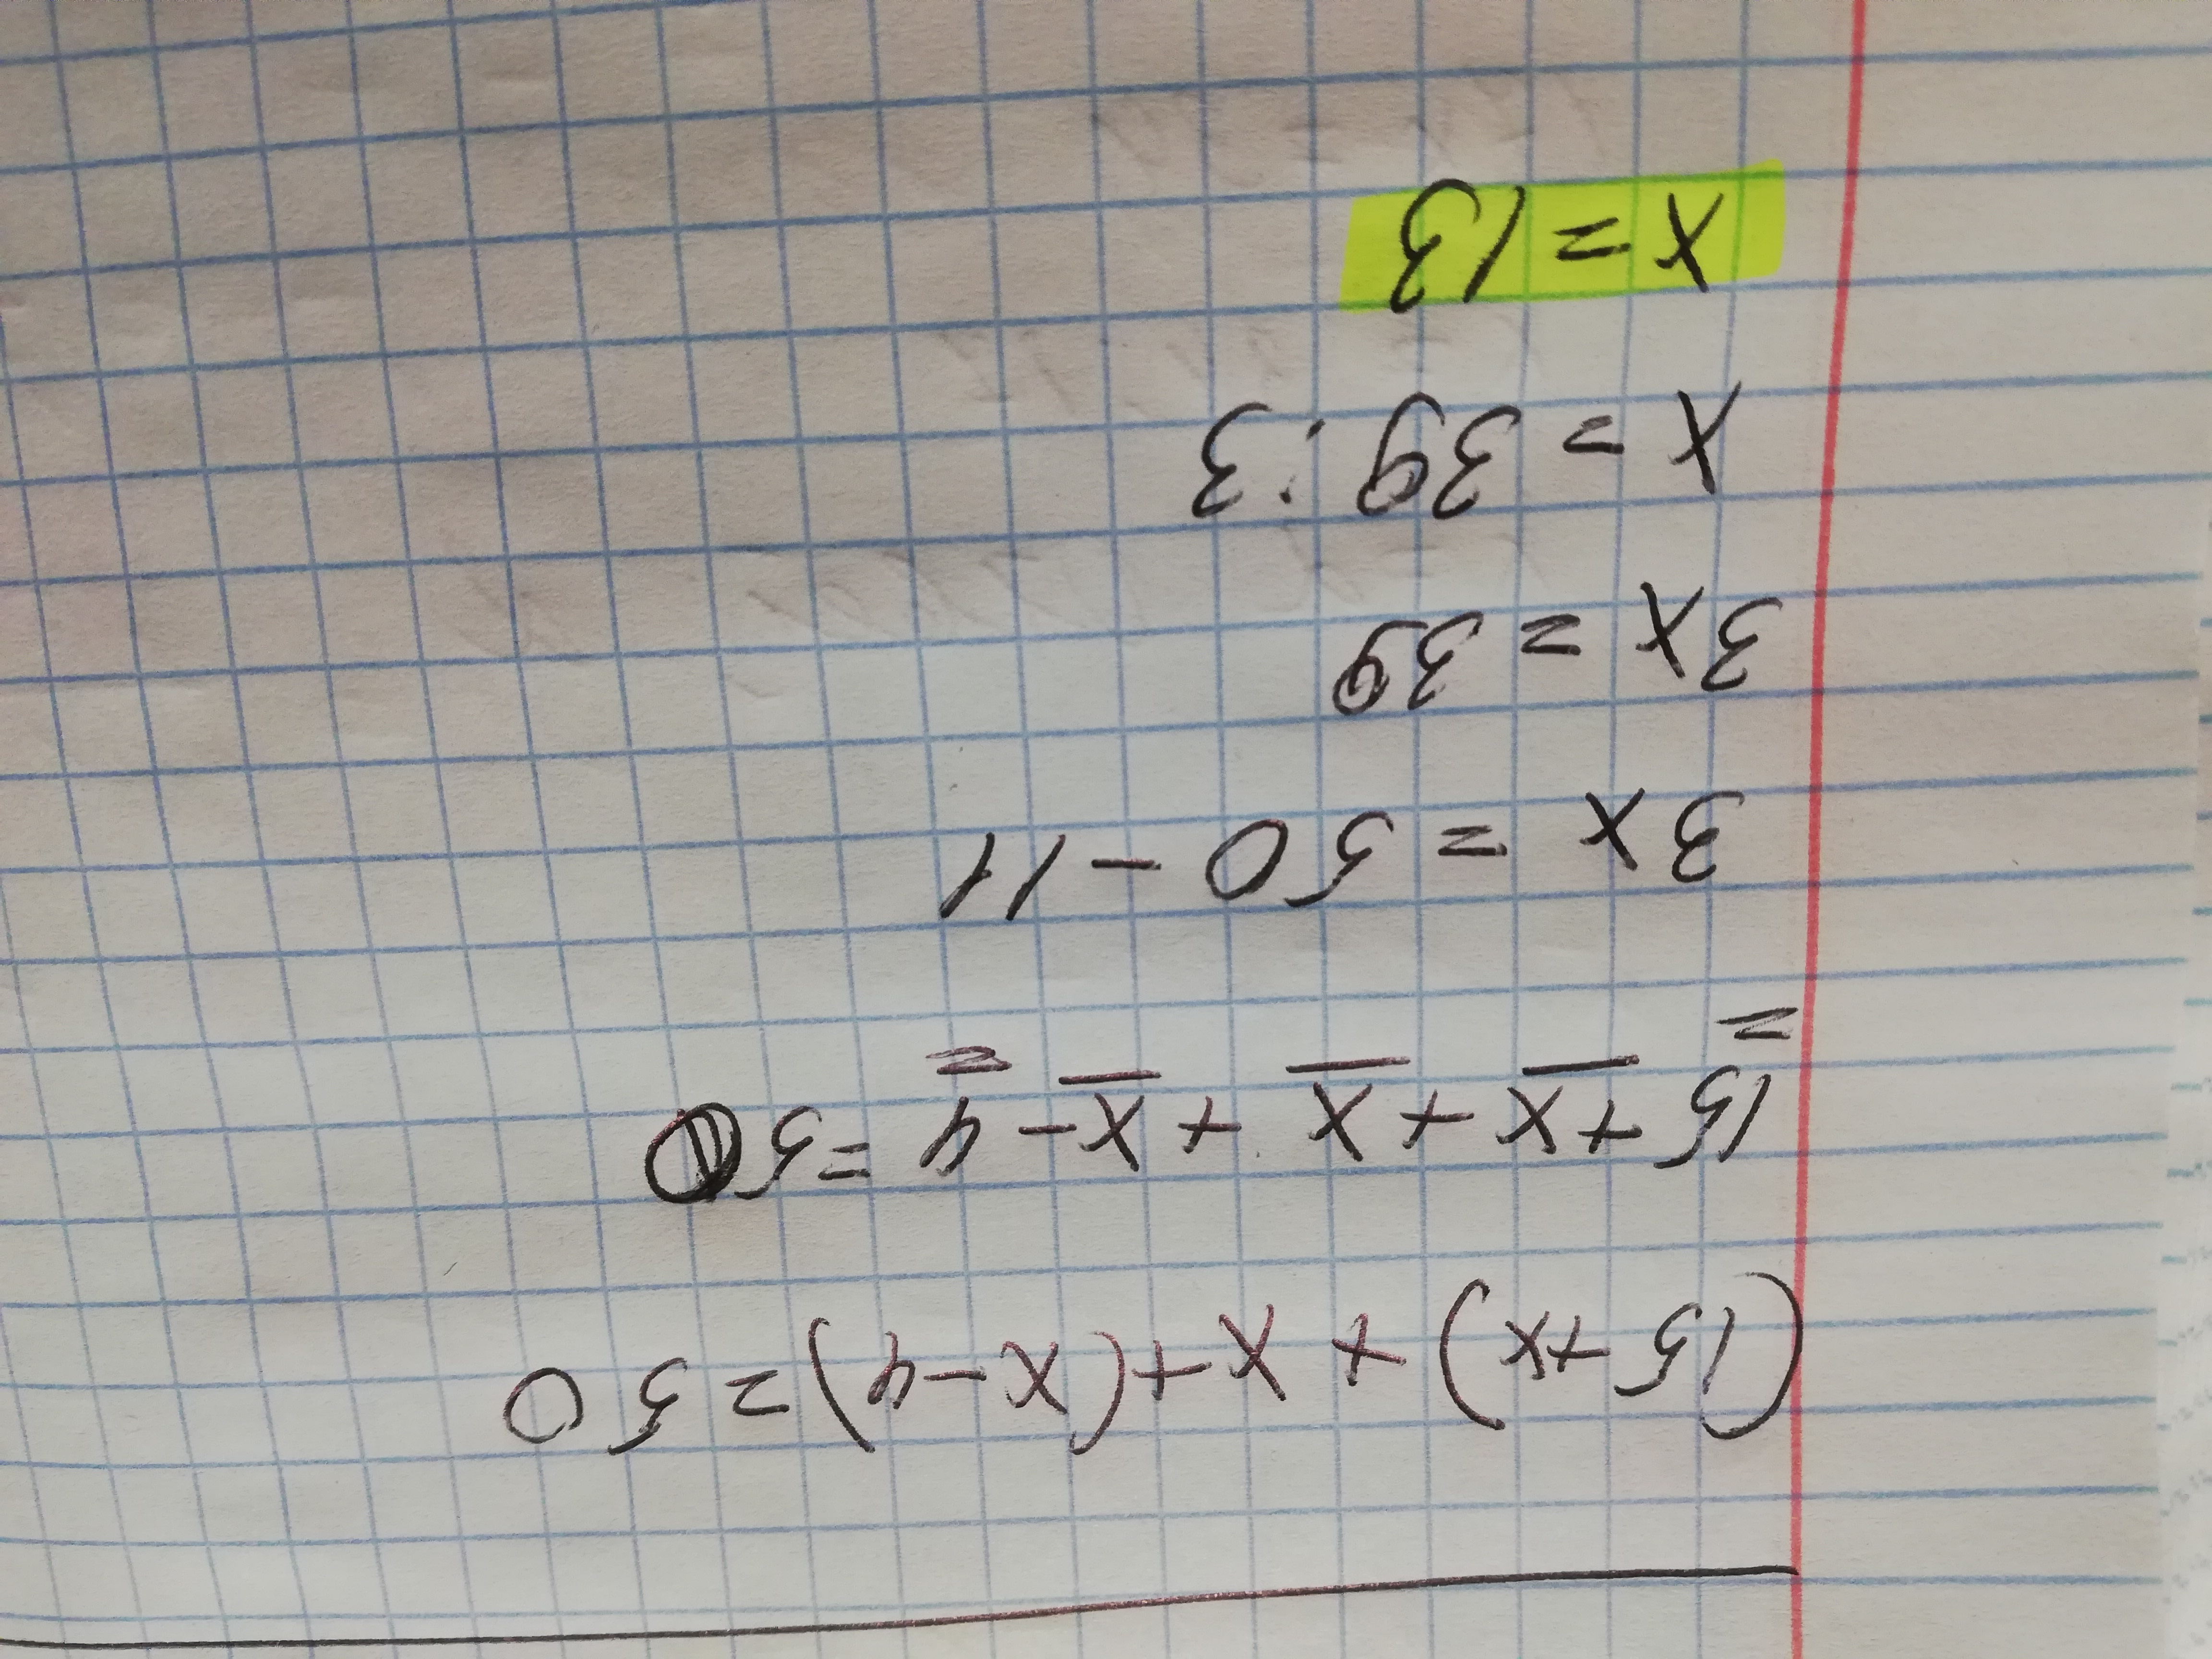 (15+x)+x+(x-4)=50
15+x+x+x-4=50
3x=50-11
3x=39
x=39:3
x=13